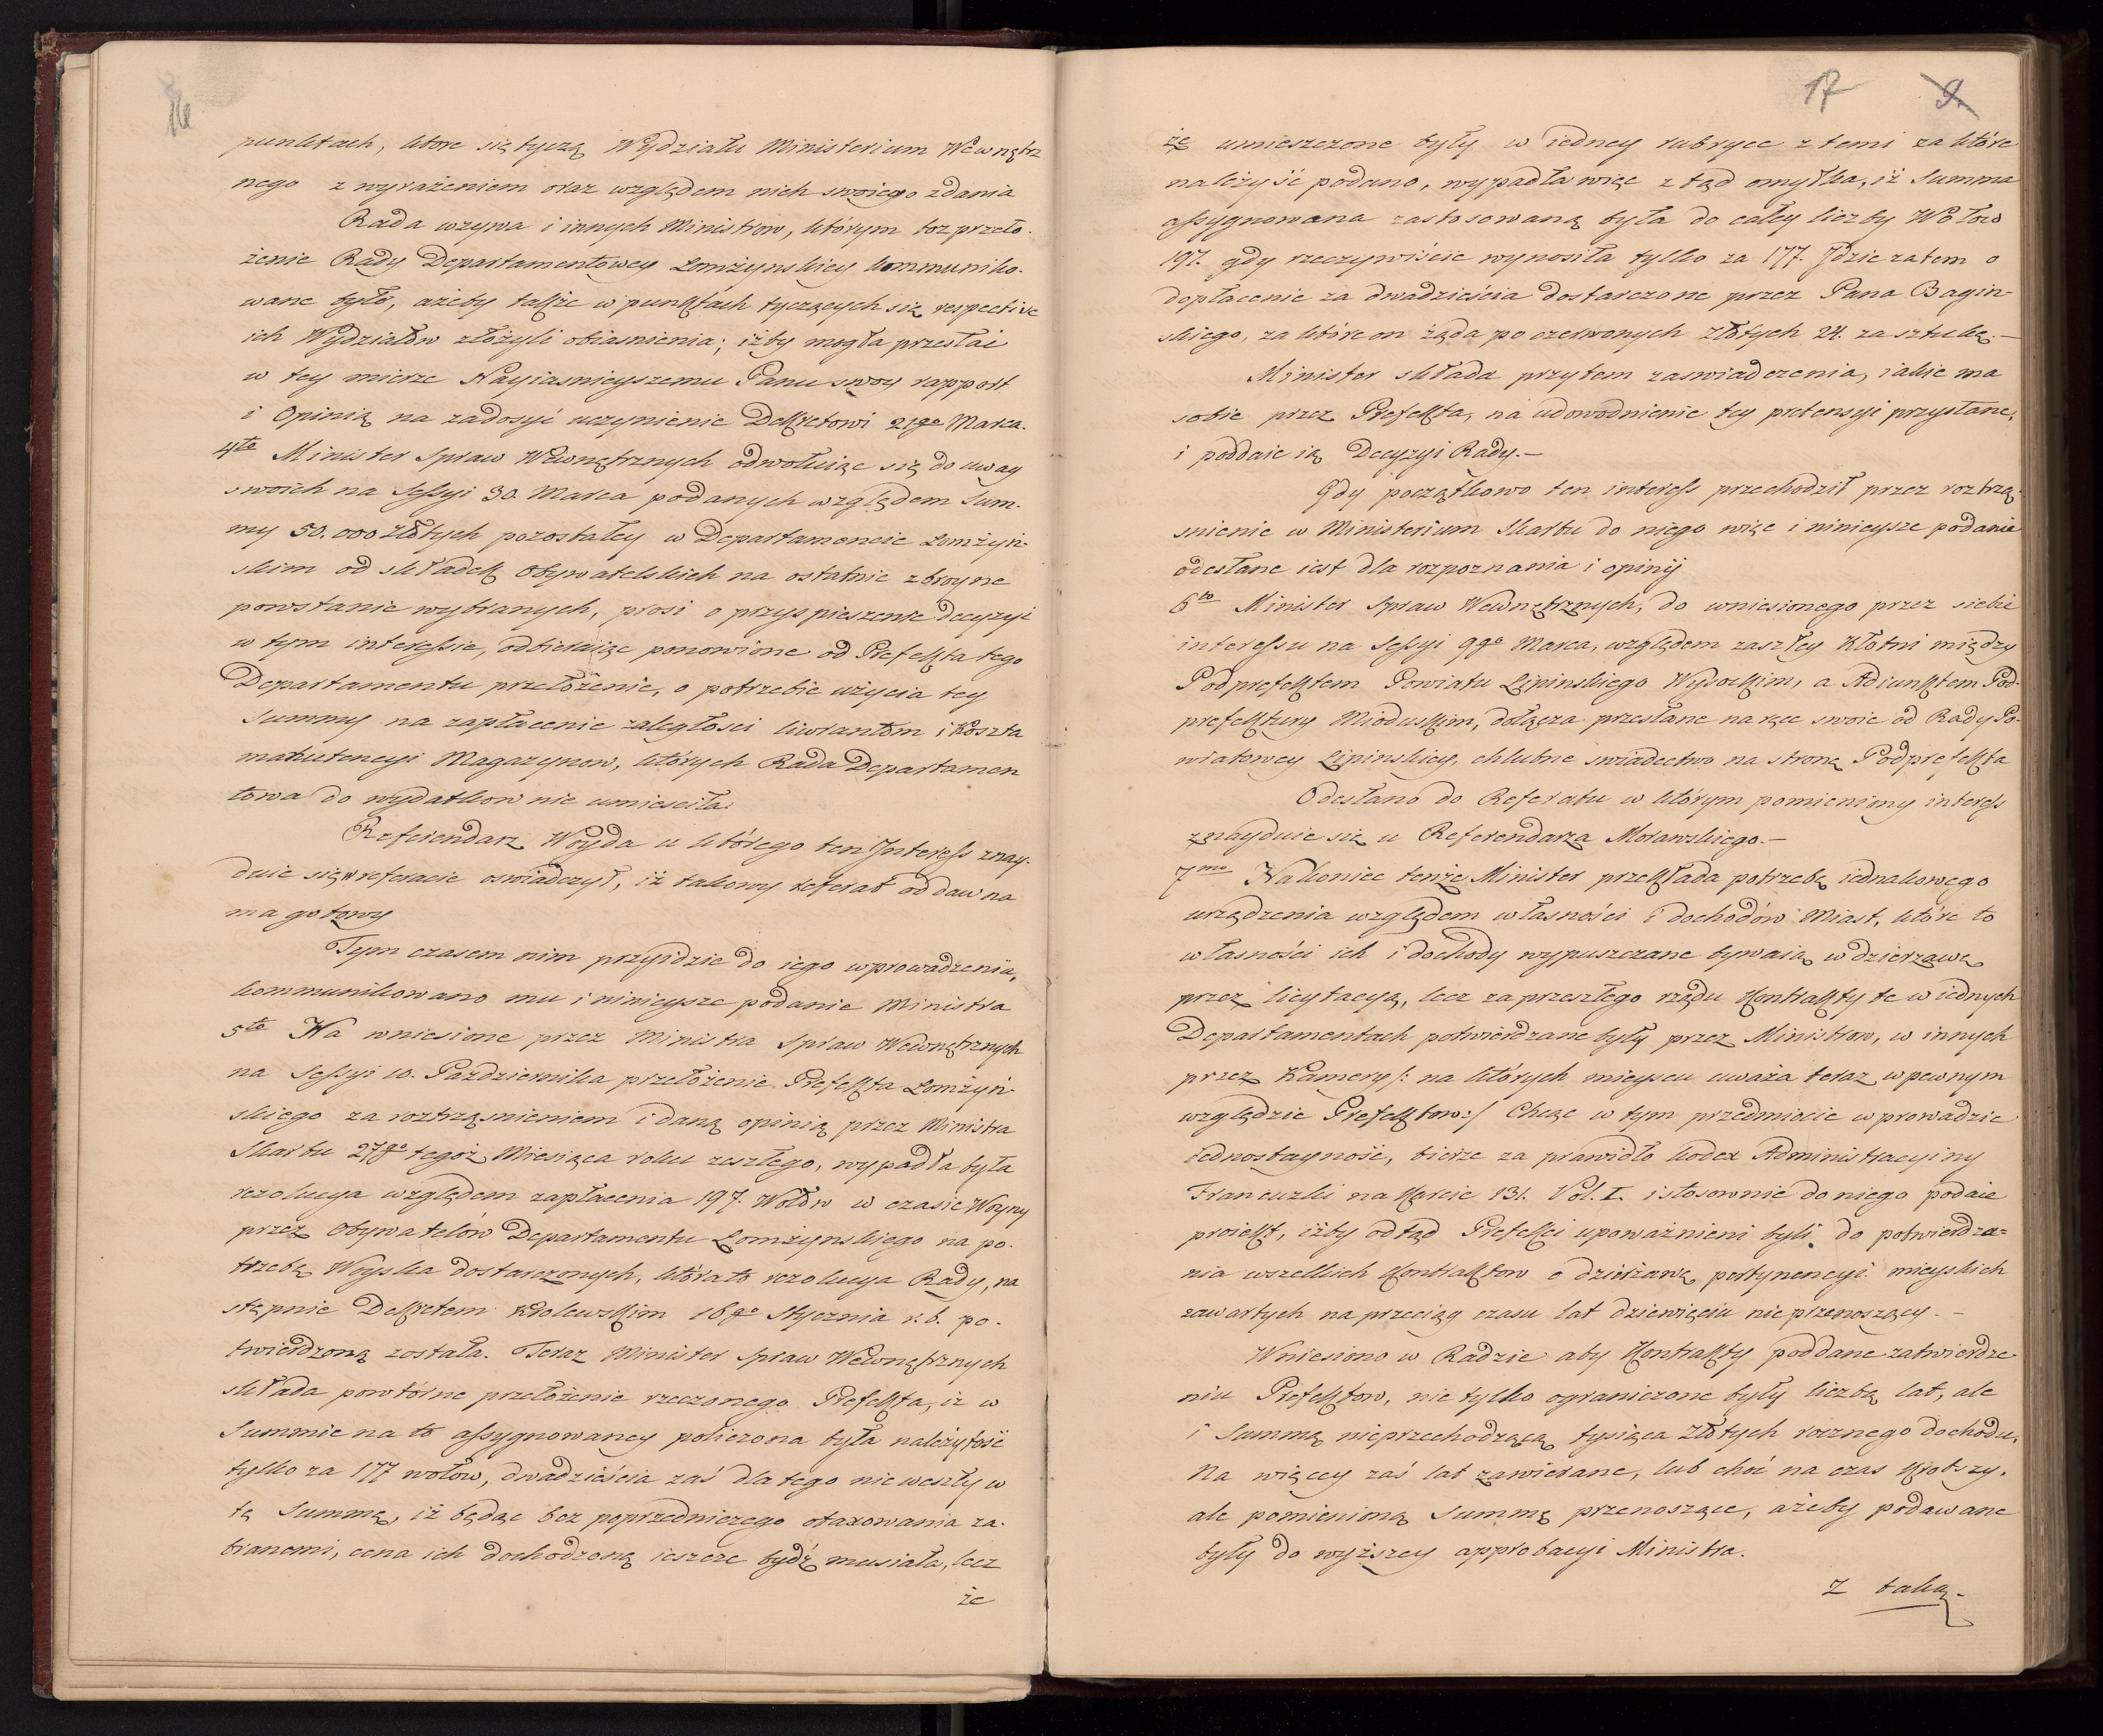 16
punktach, ktore się tyczą Wydziału Ministerium Wewnętrz
nego z wyrażeniem oraz względem nich swoiego zdania
Rada wzywa i innych Ministrow, którym toż przeło-
żenie Rady Departamentowey Łomżynskiey kommuniko-
wane było, ażeby także w punktach tyczących się respective
ich Wydziałów złożyli obiasnienia; iżby mogła przesłać
w tey mierze Nayiasnieyszemu Panu swoy rapport
i Opinią na zadosyć uczynienie Dekretowi 21go Marca.
4to Minister Spraw Wewnętrznych odwołuiąc się do uwag
swoich na Sessyi 30. Marca podanych względem Sum-
my 50.000 Złotych pozostałey w Departamencie Łomżyń-
skim od składek Obywatelskich na ostatnie zbroyne
powstanie wybranych, prosi o przyspieszenie decyzyi
w tym interessie, odbieraiąc ponowione od Prefekta tego
Departamentu przełożenie, o potrzebie użycia tey
Summy na zapłacenie zaległosci liwrantom i Koszta
manutencyi Magazynow, których Rada Departamen
towa do wydatkow nie umiesciła.
Referendarz Woyda u którego ten Interess znay-
duie się w referacie oswiadczył, iż takowy referat od dawna
ma gotowy
Tym czasem nim przyidzie do iego wprowadzenia,
kommunikowano mu i ninieysze podanie Ministra
5to Na wniesione przez Ministra Spraw Wewnętrznych
na Sessyi 10. Pazdziernika przełożenie Prefekta Łomżyń-
skiego za roztrząsnieniem i daną opinią przez Ministra
Skarbu 27go tegoż Miesiąca roku zeszłego, wypadła była
rezolucya względem zapłacenia 197. Wołów w czasie Woyny
przez Obywatelów Departamentu Łomżynskiego na po-
trzebę Woyska dostarczonych, któráto rezolucya Rady, na
stępnie Dekretem Krolewskim 18go Stycznia r.b. po-
twierdzoną została. Teraz Minister Spraw Wewnętrznych
składa powtórne przełożenie rzeczonego Prefekta, iż w
Summie na to assygnowaney policzona była należytość
tylko za 177 wołów, dwadzieścia zaś dla tego nie weszły w
tę Summę, iż będąc bez poprzedniczego otaxowania za-
branemi, cena ich dochodzoną ieszcze bydź musiała, lecz
że
17
9.
że umieszczone były w iedney rubryce z temi za które
należyść podano, wypadła więc ztąd omyłka, iż Summa
assygnowana zastosowaną była do całey liczby Wołow
197. gdy rzeczywiście wynosiła tylko za 177. Idzie zatem o
dopłacenie za dwadzieścia dostarczone przez Pana Bagin-
skiego, za które on żąda po czerwonych złotych 24. za sztukę.—
Minister składa przytem zaswiadczenia, iakie ma
sobie przez Prefekta, na udowodnienie tey pretensyi przysłane,
i poddaie ią Decyzyi Rady.—
Gdy początkowo ten interess przechodził przez roztrzą-
snienie w Ministerium Skarbu do niego więc i ninieysze podanie
odesłane iest dla rozpoznania i opinij
6to Minister Spraw Wewnętrznych, do wniesionego przez siebie
interessu na Sessyi 9go Marca, względem zaszłey Kłotni między
Podprefektem Powiatu Lipinskiego Wysockim, a Adiunktem Pod-
prefektury Mioduskim, dołącza przesłane na ręce swoie od Rady Po-
wiatowey Lipinskiey, chlubne swiadectwo na stronę Podprefekta
Odesłano do Referatu w którym pomieniony interess
znayduie się u Referendarza Morawskiego.—
7mo Nakoniec tenże Minister przekłada potrzebę iednakowego
urządzenia względem własności i dochodów Miast, które to
własności ich i dochody wypuszczane bywaią w dzierzawę
przez licytacyą, lecz za przeszłego rządu Kontrakty te w iednych
Departamentach potwierdzane były przez Ministrow, w innych
przez Kamery /: na których mieyscu uważa teraz w pewnym
względzie Prefektow :/ Chcąc w tym przedmiocie wprowadzić
iednostayność, bierze za prawidło kodex Administracyiny
Francuzki na Karcie 131. Vol. I. i stosownie do niego podaie
proiekt, iżby odtąd Prefekci upoważnieni byli do potwierdza=
nia wszelkich Kontraktow o dzierżawę pertynencyi mieyskich
zawartych na przeciąg czasu lat dziewięciu nieprzenoszący.—
Wniesiono w Radzie aby Kontrakty poddane zatwierdze-
niu Prefektow, nie tylko ograniczone były liczbą lat, ale
i Summą nieprzechodzącą tysiąca Złotych rocznego dochodu,
Na więcey zaś lat zawierane, lub choć na czas krotszy,
ale pomienioną Summę przenoszące, ażeby podawane
były do wyższey approbacyi Ministra.
Z taką